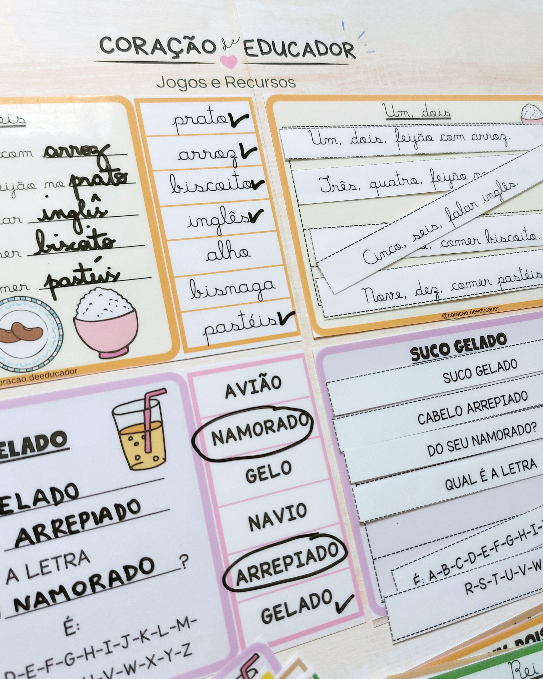 CORAÇÃO de EDUCADOR
Jogos e Recursos
com arroz
no prato
inglês
biscoito
pastéis
prato
arroz
biscoito
inglês
alho
bisnaga
pastéis
Um, dois
Um, dois, feijão com arroz.
Três, quatro, feijão
Cinco, seis, falar inglês.
comer biscoito.
Nove, dez, comer pastéis
@coracao.deeducador
coracao.deeducador
GELADO
ARREPIADO
A LETRA
NAMORADO ?
É:
D-E-F-G-H-I-J-K-L-M-
U-V-W-X-Y-Z
AVIÃO
NAMORADO
GELO
NAVIO
ARREPIADO
GELADO
SUCO GELADO
SUCO GELADO
CABELO ARREPIADO
DO SEU NAMORADO?
QUAL É A LETRA
É: A-B-C-D-E-F-G-H-I-
R-S-T-U-V-W-
Rei